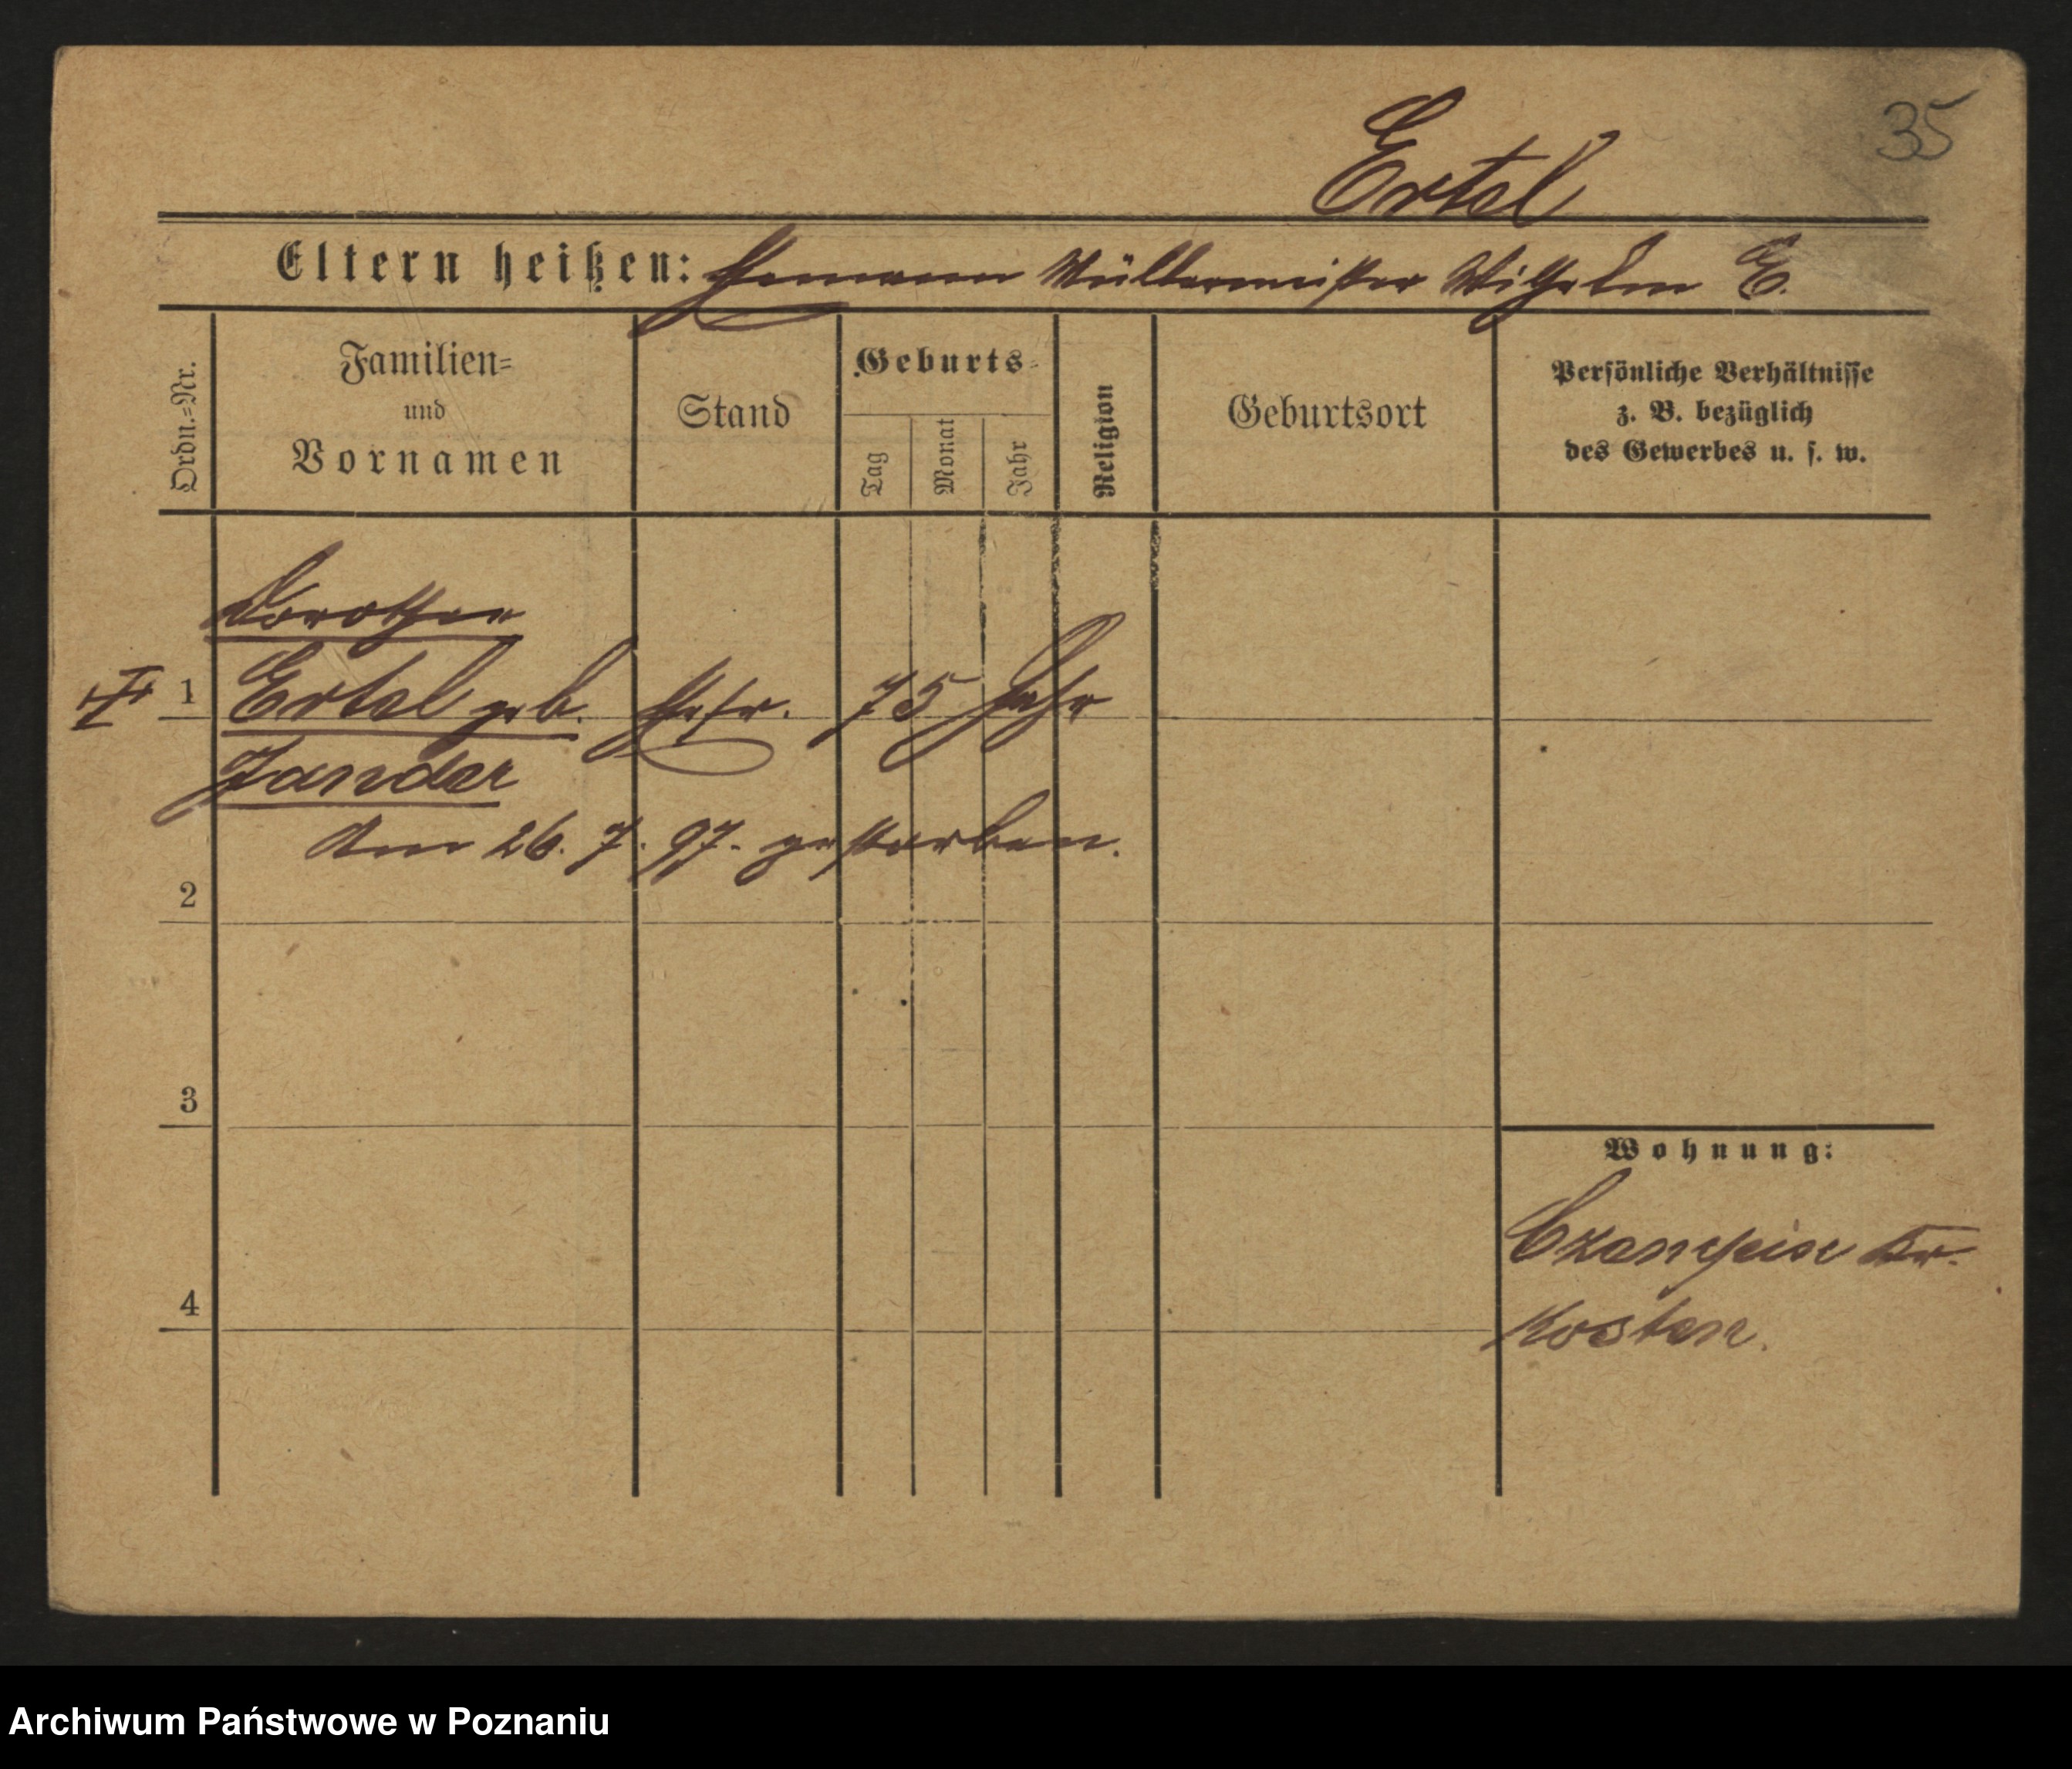 35
Ertel
Eltern heißen: Ehemann Müllermeister Wilhelm E.
Ordn.=Nr.
Familien=
und
Vornamen
Stand
Geburts=
Tag
Monat
Jahr
Religion
Geburtsort
Persönliche Verhältnisse
z. B. bezüglich
des Gewerbes u. s. w.
Dorothea
1 Ertel geb. Ehefr. 75 Jahr
Jander
am 26. 7. 97. gestorben.
2
3
Wohnung:
Czempin Kr.
4
Kosten.
Archiwum Państwowe w Poznaniu